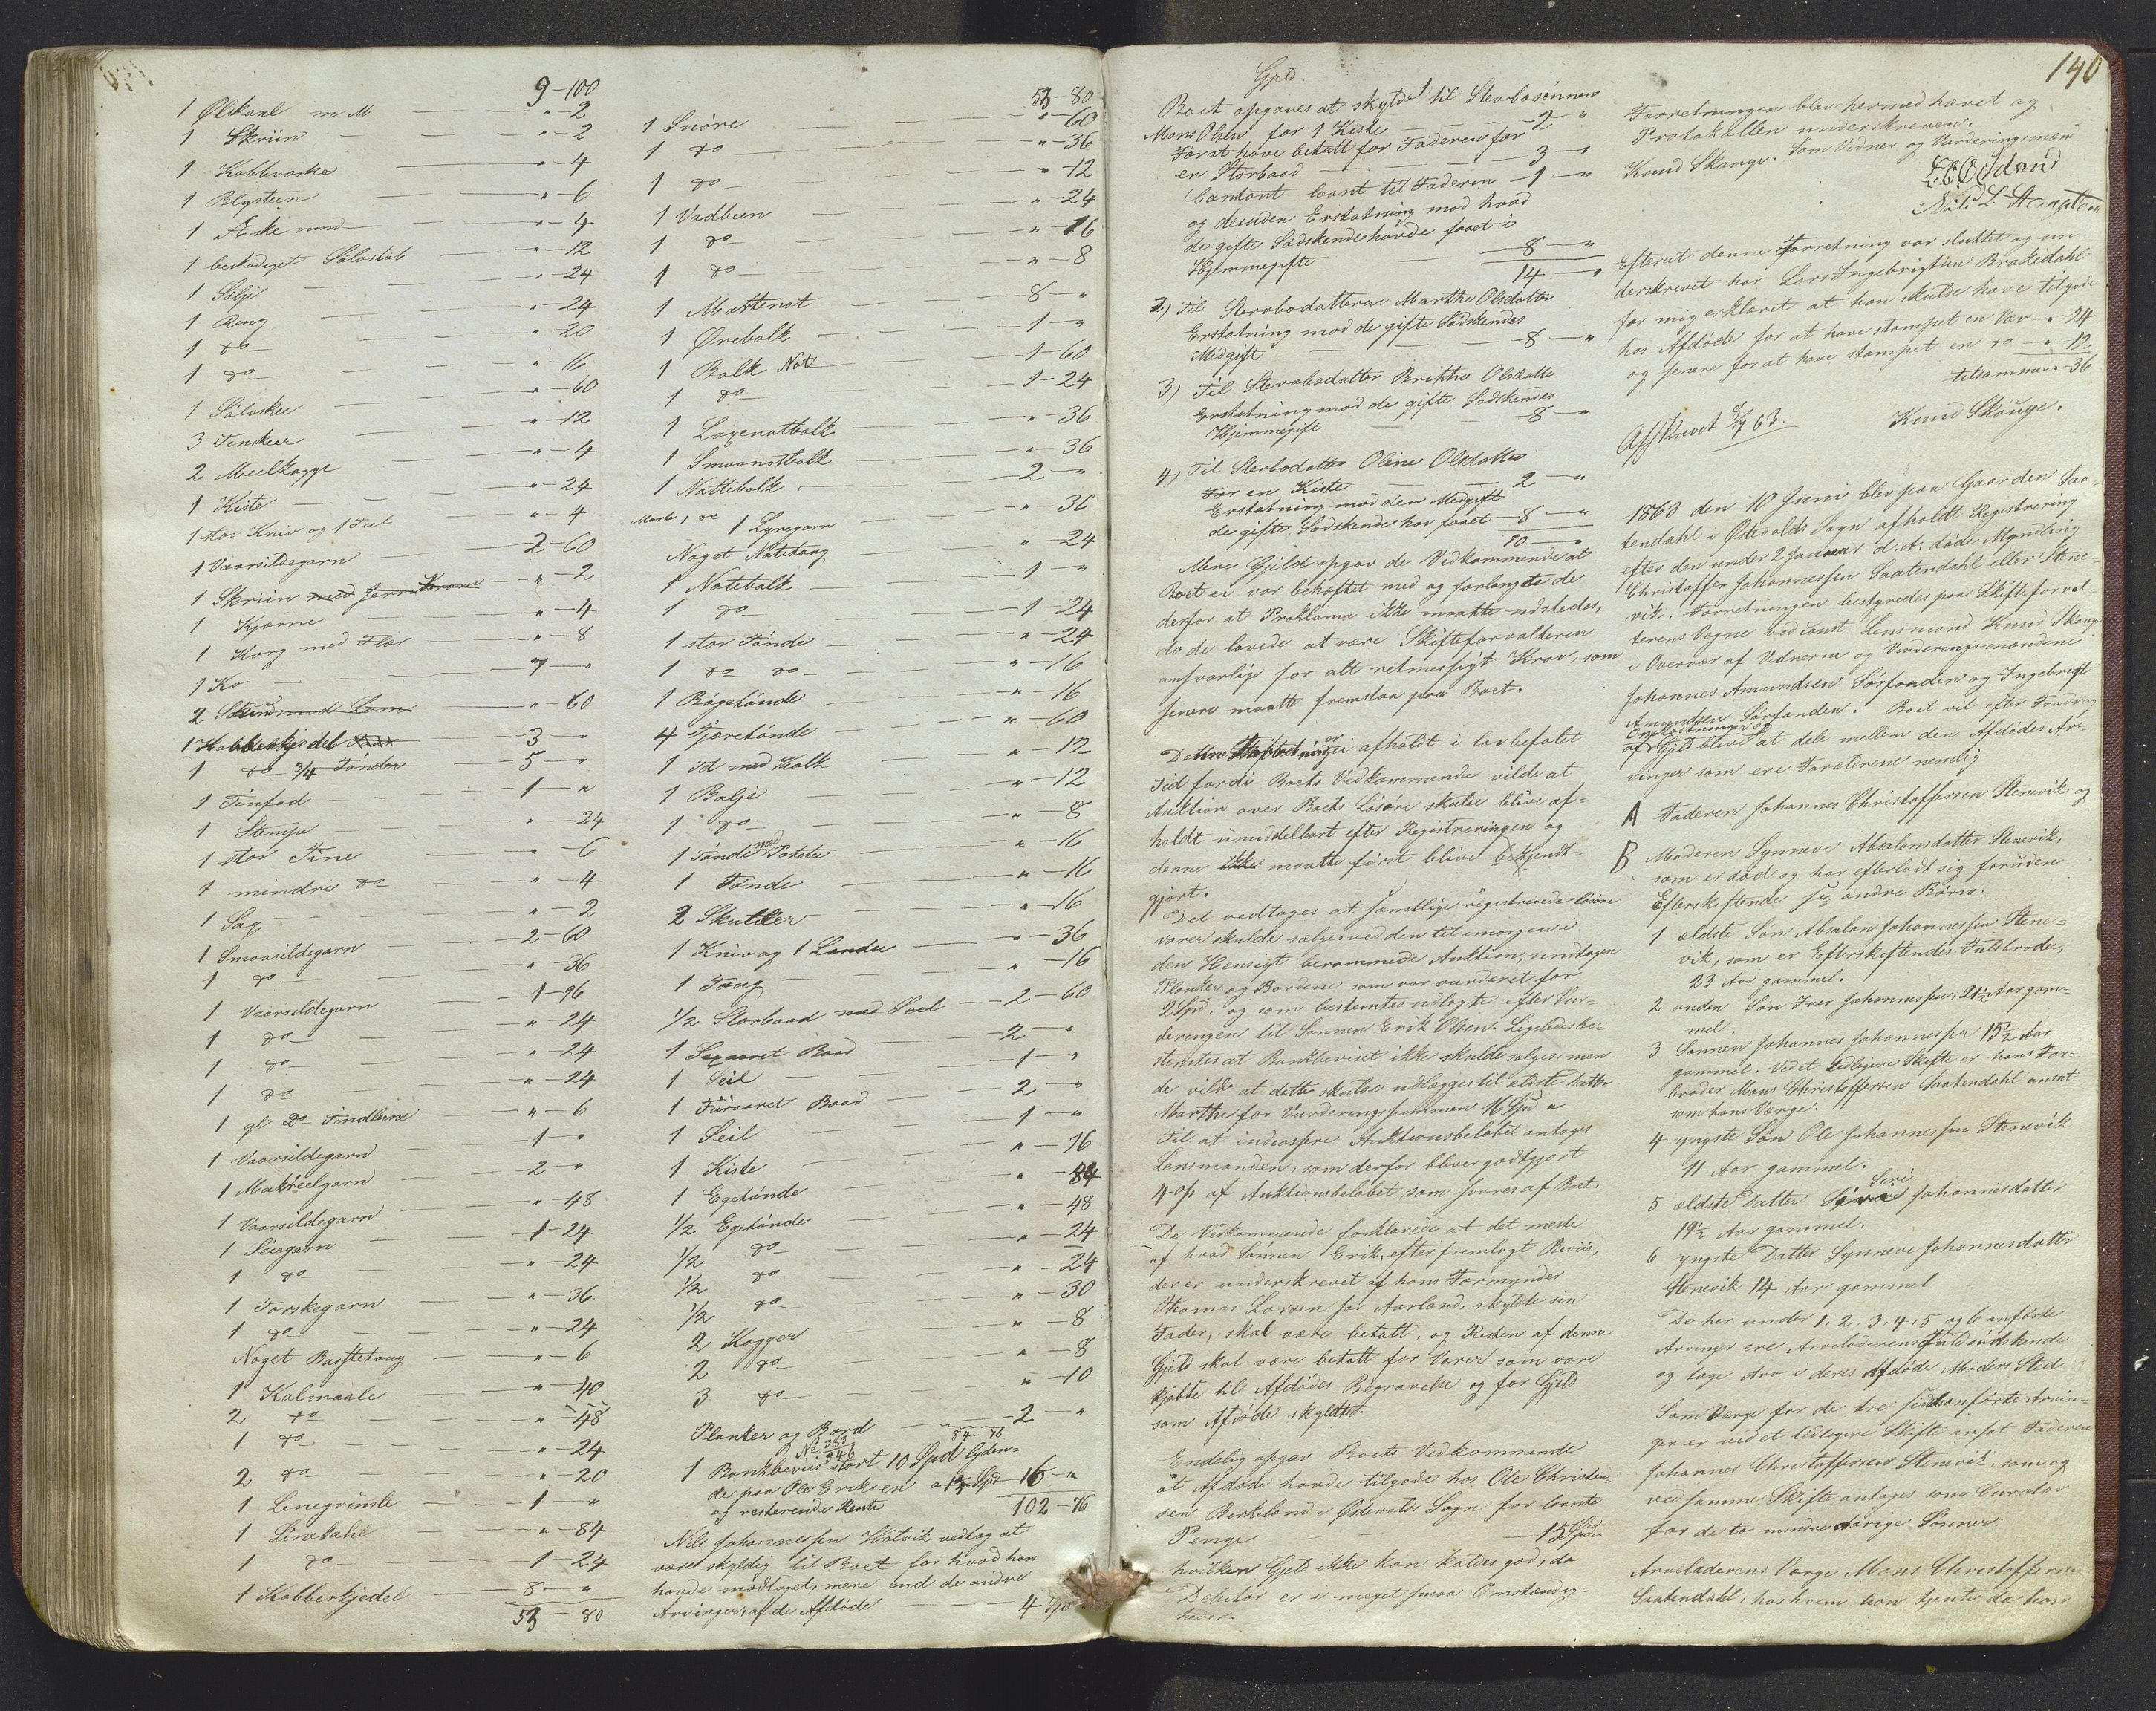 9-100
1 Ølskaal m M " - 2
1 Skriin " - 2
1 Kobberske " - 4
1 Blysteen " - 6
1 Æske rund " - 4
1 beskadiget Sølvstab " - 12
1 Sølje " - 24
1 Ring " - 24
1 do " - 20
1 do " - 16
1 Sølvskee " - 60
3 Tinskeer " - 12
2 Meelkagge " - 4
1 Kiste " - 24
1 stor Kniv og 1 Fiil " - 4
1 Vaarsildegarn 2 - 60
1 Skriin med Jernkrone " - 2
1 Kjærne " - 4
1 Korg med Flær " - 8
1 Ko 7 - "
2 Skind med Lam " - 60
1 Kobberkjedel 3 - "
1 do 3/4 Tønder 5 - "
1 Tinfad 1 - "
1 Stempe " - 24
1 stor Tine " - 6
1 mindre do " - 4
1 Sag " - 2
1 Smaasildegarn 2 - 60
1 do " - 36
1 Vaarsildegarn 1 - 96
1 do " - 24
1 do " - 24
1 do " - 24
1 gl Do Findline " - 6
1 Vaarsildegarn 1 - "
1 Makreelgarn 2 - "
1 Vaarsildegarn " - 48
1 Seiegarn 1 - 24
1 do " - 24
1 Torskegarn " - 36
1 do " - 24
Noget Basttetoug " - 6
1 Kalvnaale " - 40
2 do " - 48
1 do " - 24
2 do " - 20
1 Linegrinde 1 - "
1 Linestahl " - 84
1 do 1 - 24
1 Kobberkjedel 8 - "
53 - 80
53 - 80
1 Snøre " - 60
1 do " - 36
1 do " - 12
1 Vadbeen " - 24
1 do " - 16
1 do " - 8
1 Mortenot 8 - "
1 Ørebalk 1 - "
1 Balk Not 1 - 60
1 do 1 - 24
1 Laxenotbalk " - 36
1 Smaanotbalk " - 36
1 Nottebalk 2 - "
1 Lyregarn " - 36
Noget Nottetoug " - 24
1 Notebalk 1 - "
1 do 1 - 24
1 stor Tønde " - 24
1 do do " - 16
1 Bøgetønde " - 16
4 Tjæretønde " - 60
1 Td med Kalk " - 12
1 Balje " - 12
1 do " - 8
1 Tønde med Poteter " - 16
1 Tønde " - 16
2 Skutler " - 16
1 Kniv og 1 Landse " - 36
1 Tang " - 16
1/2 Storbaad med Seil 2 - 60
1 Sexaaret Baad 2 - "
1 Seil 1 - "
1 Firaaret Baad 2 - "
1 Seil 1 - "
1 Kiste " - 16
1 Egetønde " - 84
1/2 Egetønde " - 48
1/2 do " - 24
1/2 do " - 24
1/2 do " - 30
2 Kagger " - 8
2 do " - 8
3 do " - 10
Planker og Bord 2 - "
84 - 76
No 383/346
1 Bankbeviis stort 10 Spd lyden-
de paa Ole Eriksen
og resterende Rente 16 - "
102 - 76
Nils Johannessen Hatvik vedtog at
være skyldig til Boet for hvad han
havde modtaget, mere end de andre
Arvinger, af de Afdøde 4 Spd
140
Gjeld
Boet opgaves at skylde 1 til Stervbosønnen
Mons Olsen for 1 Kiste 2 - "
For at have betalt for Faderen for
en Storbaad 3 - "
Contant laant til Faderen 1 - "
og desuden Erstatning mod hvad
de gifte Sødskende havde faaet i
Hjemmegifte 8 - "
14 - "
2) Til Stervbodatteren Marthe Olsdatter
Erstatning mod de gifte Sødskendes
Medgift 8 - "
3) Til Stervbodatter Brithe Olsdatter
Erstatning mod de gifte Sødskendes
Hjemmegift 8 - "
4) Til Stervbodatter Oline Olsdatter
For en Kiste 2 - "
Erstatning mod den Medgift
de gifte Sødskende har faaet 8 - "
10 - "
Mere Gjeld opgav de Vedkommende at
Boet ei var behæftet med og forlangte de
derfor at Proklama ikke maatte udstedes,
da de lovede at være Skifteforvalteren
ansvarlige for alt retmessigt Krav, som
senere maatte fremstaa paa Boet.
Denne Forretning er ei afholdt i lovbefalet
Tid fordi Boets Vedkommende vilde at
Auktion over Boets Løsøre skulde blive af-
holdt umiddelbart efter Registreringen og
denne maatte først blive bekjendt-
gjort.
Det vedtages at samtlige registrerede løsøre
varer skulde sælges ved den til imorgen i
den Hensigt berammede Auktion, undtagen
Planker og Bordene som var vurderet for
2 Spd. og som bestemtes udlagte efter Vur-
deringen til Sønnen Erik Olsen. Ligeledes be-
stemtes at Bankbeviset ikke skulde sælges men
de vilde at dette skulde udlægges til eldste Datter
Marthe for Vurderingssummen 16 Spd "
Til at indcassere Auktionsbeløbet antages
Lensmanden, som derfor bliver godtgjort
4 op af Auktionsbeløbet, som svares af Boet.
De Vedkommende forklarede at det meste
af hvad Sønnen Erik, efter fremlagt Beviis,
der er underskrevet af hans Formynder
Thomas Larsen for Aarland, skyldte sin
Fader, skal være betalt, og Resten af denne
Gjeld skal være betalt for Varer som vare
kjøbte til Afdødes Begravelse og for Gjeld
som Afdøde skyldte.
Endelig opgav Boets Vedkommende
at Afdøde havde tilgode hos Ole Christen-
sen Birkeland i Østevolds Sogn for laante
Penge 15 Spd
hvilken Gjeld ikke kan kaldes god, da
Debitor er i meget smaa Omstændig-
heder.
Forretningen blev hermed hævet og
Protokollen underskreven.
Knud Skauge. Som Vidner og Vurderingsmænd
Efterat denne Forretning var sluttet og un-
derskrevet har Lars Ingebrigtsen Brakedahl
for mig erklæret at han skulde have tilgode
hos Afdøde for at have stampet en Vær " - 24
og senere for at have stampet en do " - 12
tilsammen " - 36
Knud Skauge.
Afskrevet 8/7 63.
1863 den 10 Juni blev paa Gaarden Saa-
tendahl i Østevolds Sogn afholdt Registrering
efter den under 2 Januar d. A. døde Myndling
Christoffer Johannessen Saatendahl eller Stene-
vik. Forretningen bestyredes paa Skifteforval-
terens Vegne ved const. Lensmand Knud Skauge
i Overvær af Vidnerne og Vurderingsmændene
Johannes Amundsen Sørfonden og Ingebrigt
Amundsen Sørfonden. Boet vil efter Fradrag
af Omkostninger og Gjeld blive at dele mellem den Afdødes Ar-
vinger som ere Forældrene nemlig
A Faderen Johannes Christoffersen Stenevik og
B Moderen Synneve Absalonsdatter Stenevik,
som er død og har efterladt sig foruden
Efterskiftende 6 andre Børn.
1 ældste Søn Absalon Johannessen Stene-
vik, som er Efterskiftendes Fulsbroder,
23 Aar gammel.
2 anden Søn Iver Johannessen, 21½ Aar gam-
mel
3 Sønnen Johannes Johannessen 15½ Aar
gammel. Ved et tidligere Skifte er hans Far-
broder Mons Christoffersen Saatendahl ansat
som hans Værge.
4 yngste Søn Ole Johannessen Stenevik
11 Aar gammel.
5 ældste Datter Siri Johannesdatter
19½ Aar gammel.
6 yngste Datter Synneve Johannesdatter
Stenevik 14 Aar gammel
De her under 1, 2, 3, 4, 5 og 6 anførte
Arvinger ere Arveladerens Fuldsødskende
og tage Arv i deres afdøde Moders Sted
Som Værge for de tre sidstanførte Arvin-
ger er ved et tidligere Skifte ansat Faderen
Johannes Christoffersen Stenevik, som og
ved samme Skifte antoges som Curator
for de to mindreaarige Sønner.
Arveladerens Værge Mons Christoffersen
Saatendahl, hos hvem han tjente da han